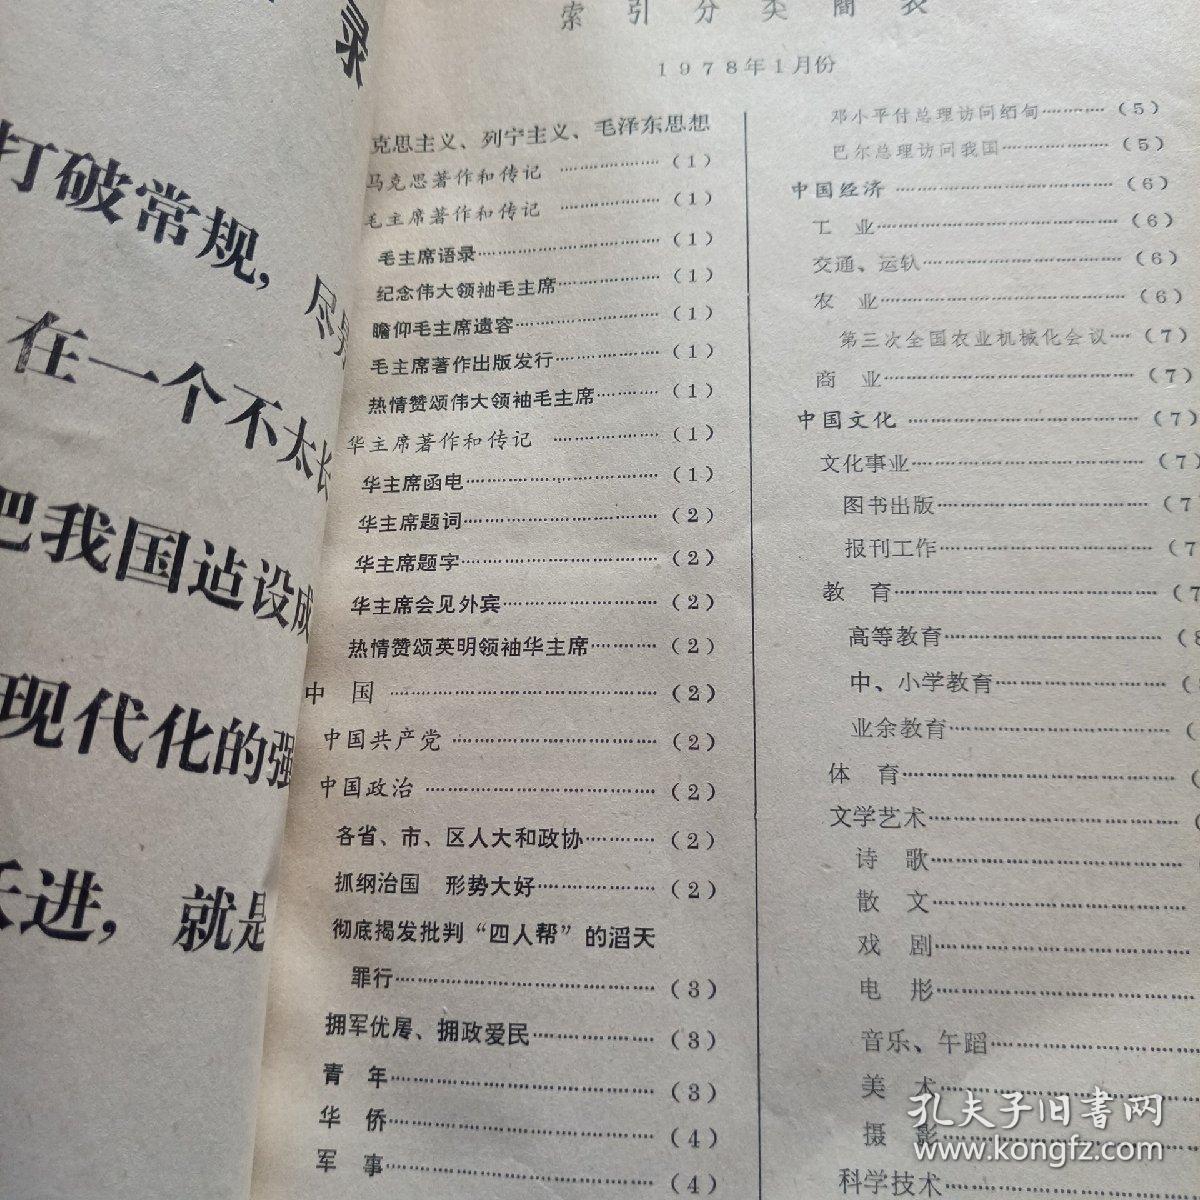 录
打破常规，尽
在一个不太长
把我国迠设成
现代化的强
跃进，就是
索引分类简表
1978年1月份
克思主义、列宁主义、毛泽东思想
马克思著作和传记………………（1）
毛主席著作和传记………………（1）
毛主席语录………………（1）
纪念伟大领袖毛主席………………（1）
瞻仰毛主席遗容………………（1）
毛主席著作出版发行………………（1）
热情赞颂伟大领袖毛主席…………（1）
华主席著作和传记………………（1）
华主席函电………………（1）
华主席题词………………（2）
华主席题字………………（2）
华主席会见外宾………………（2）
热情赞颂英明领袖华主席…………（2）
中　国………………（2）
中国共产党………………（2）
中国政治………………（2）
各省、市、区人大和政协…………（2）
抓纲治国　形势大好………………（2）
彻底揭发批判“四人帮”的滔天
罪行………………（3）
拥军优属、拥政爱民………………（3）
青　年………………（3）
华　侨………………（4）
军　事………………（4）
邓小平付总理访问缅甸…………（5）
巴尔总理访问我国………………（5）
中国经济………………（6）
工　业………………（6）
交通、运䡃………………（6）
农　业………………（6）
第三次全国农业机械化会议…（7）
商　业………………（7）
中国文化………………（7）
文化事业………………（7）
图书出版………………（7
报刊工作………………（7
教　育………………（7
高等教育………………（8
中、小学教育………………（
业余教育………………（
体　育………………（
文学艺术………………（
诗　歌………………
散　文………………
戏　剧………………
电　影………………
音乐、午蹈………………
美　术………………
摄　影………………
科学技术………………
孔夫子旧书网
www.kongfz.com